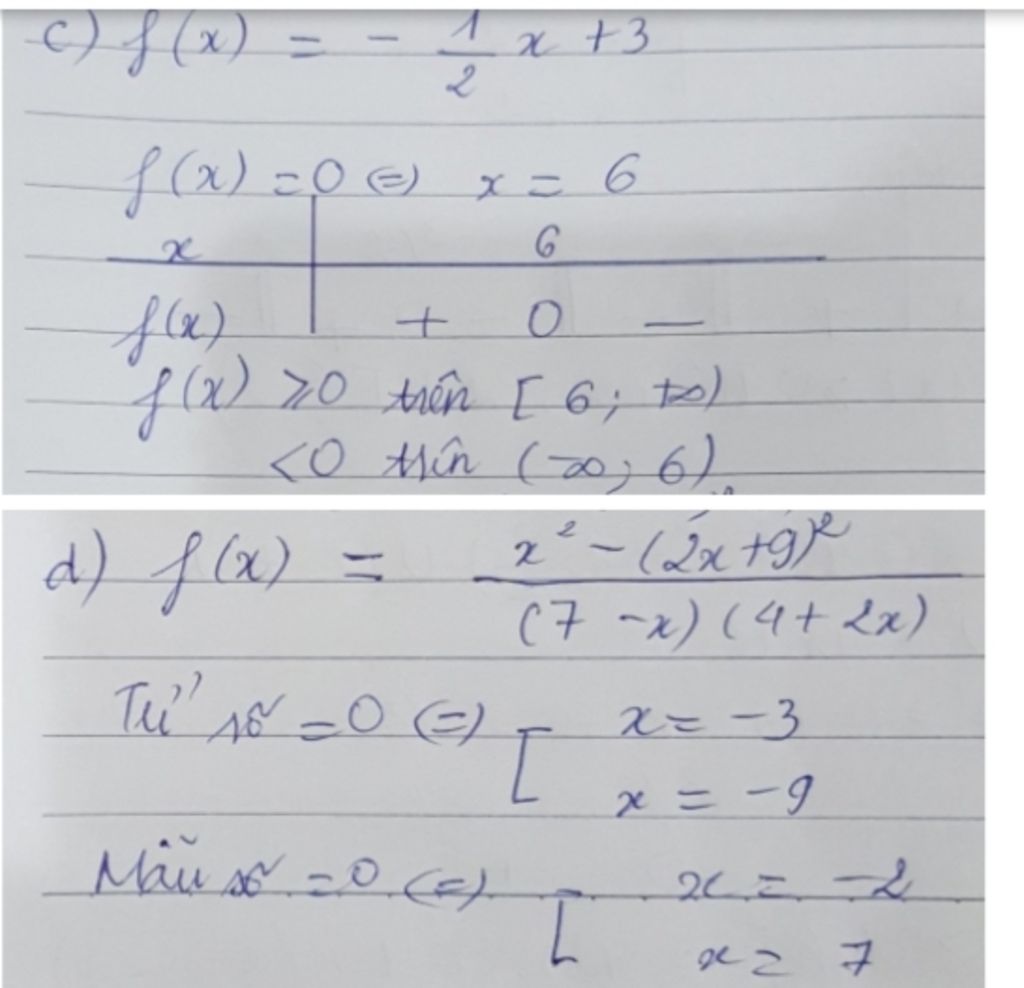 c) f(x) = - 1/2 x + 3
f(x) = 0 (=) x = 6
x 6
f(x) + 0 —
f(x) ⩾0 trên [6; +∞)
<0 trên (-∞; 6)
d) f(x) = x² - (2x+9)² / (7 - x)(4 + 2x)
Tử số = 0 (=) [ x = -3
x = -9
Mẫu số = 0 (=) [ x = -2
x = 7